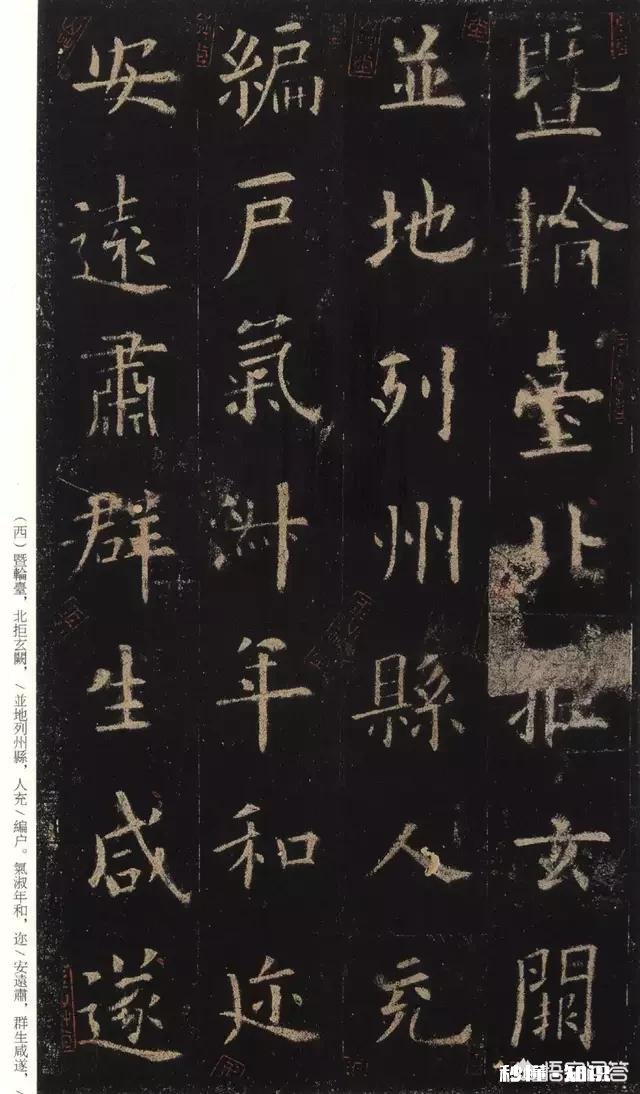 暨輪臺北拒玄闕
並地列州縣人充
編戶氣淑年和迩
安遠肅群生咸遂
（西）暨輪臺，北拒玄闕，/並地列州縣，人充/編户。氣淑年和，迩/安遠肅，群生咸遂，/
悟空问答
秒懂·知识